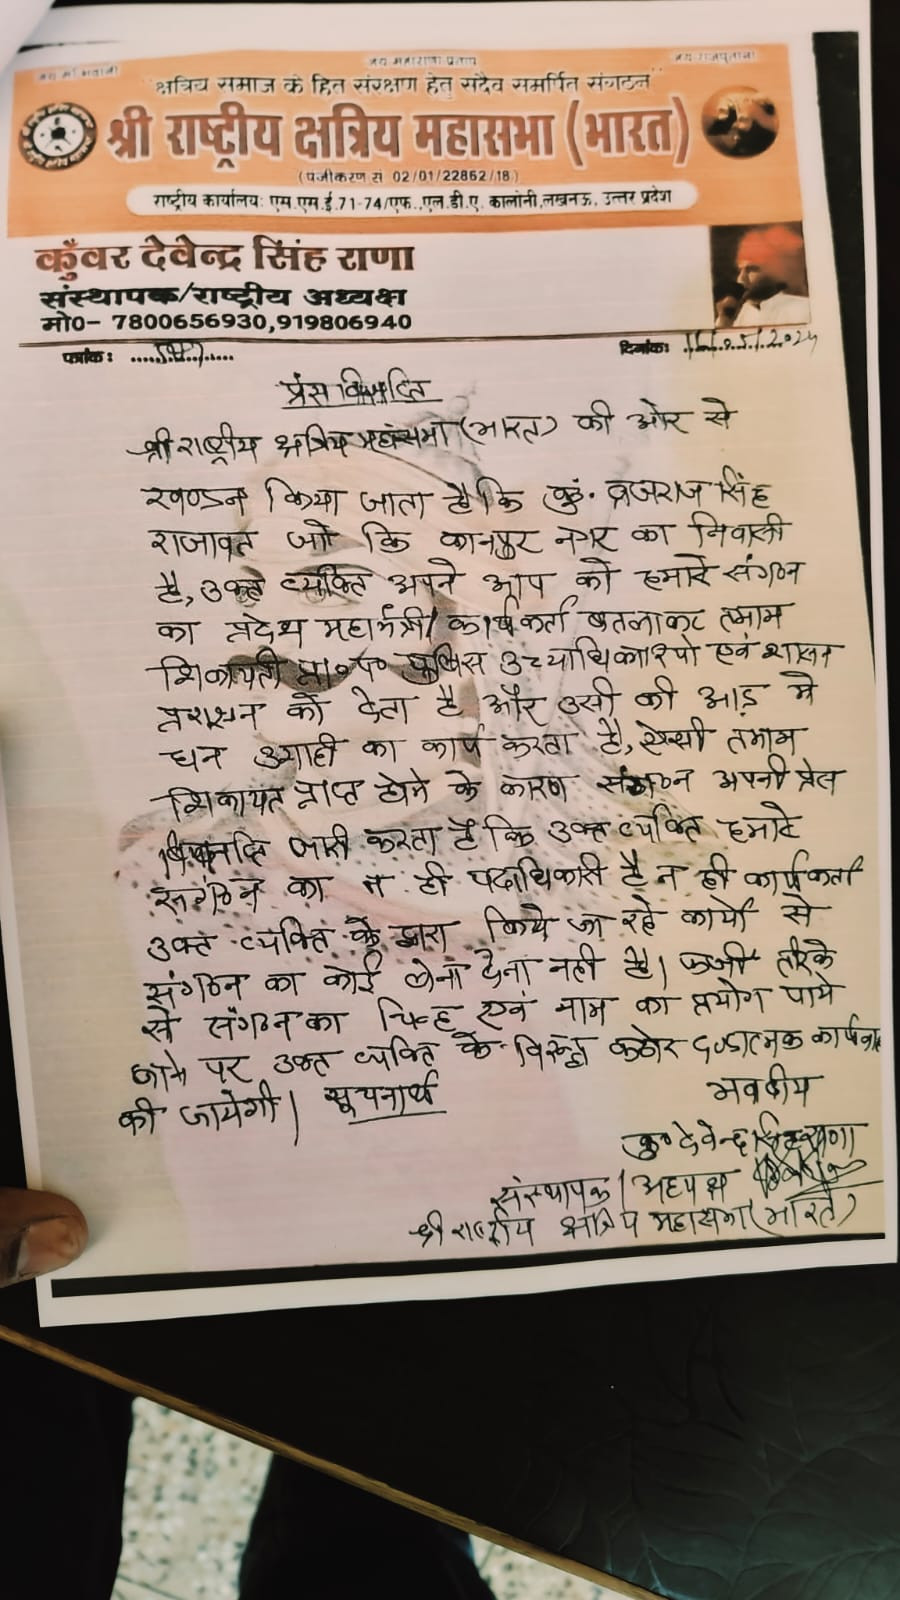 जय माँ भवानी
जय महाराणा प्रताप
जय राजपूताना
"क्षत्रिय समाज के हित संरक्षण हेतु सदैव समर्पित संगठन"
श्री राष्ट्रीय क्षत्रिय महासभा (भारत)
(पंजीकरण सं 02/01/22862/18)
राष्ट्रीय कार्यालयः एस.एस.ई.71-74/एफ.,एल.डी.ए. कालोनी,लखनऊ, उत्तर प्रदेश
कुँवर देवेन्द्र सिंह राणा
संस्थापक/राष्ट्रीय अध्यक्ष
मो0- 7800656930,919806940
पत्रांक:
दिनांक:
प्रेस
श्री राष्ट्रीय क्षत्रिय महासभा (भारत) की ओर से
खण्डन किया जाता है कि कुं. ब्रजराज सिंह
राजावत जो कि कानपुर नगर का निवासी
है, उक्त व्यक्ति अपने आप को हमारे संगठन
का प्रदेश महामंत्री/कार्यकर्ता बतलाकर तमाम
शिकायती प्रा०प० पुलिस उच्चाधिकारियो एवं शासन
प्रशासन को देता है और उसी की आड़ मे
धन उगाही का कार्य करता है, ऐसी तमाम
शिकायत प्राप्त होने के कारण संगठन अपनी प्रेस
जारी करता है कि उक्त व्यक्ति हमारे
संगठन का न ही पदाधिकारी है न ही कार्यकर्ता
उक्त व्यक्ति के द्वारा किये जा रहे कार्यो से
संगठन का कोई लेना देना नही है। फर्जी तरिके
से संगठन का चिन्ह एवं नाम का प्रयोग पाये
जाने पर उक्त व्यक्ति के विरुद्ध कठोर दण्डात्मक
की जायेगी। सूचनार्थ
भवदीय
कु० देवेन्द्र सिंह राणा
संस्थापक/अध्यक्ष
श्री राष्ट्रीय क्षत्रिय महासभा (भारत)